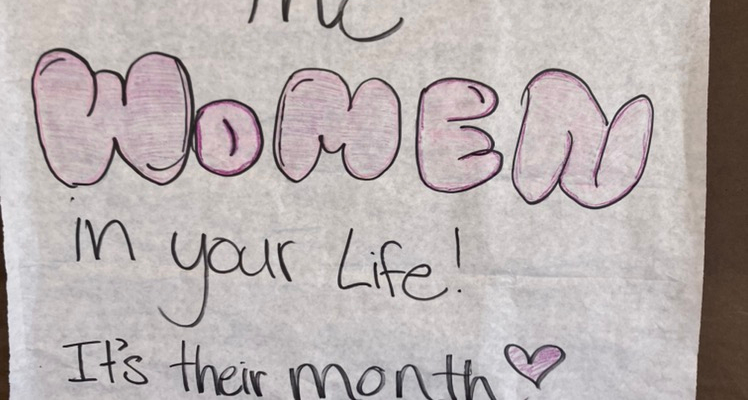 the
WOMEN
in your Life!
It's their month